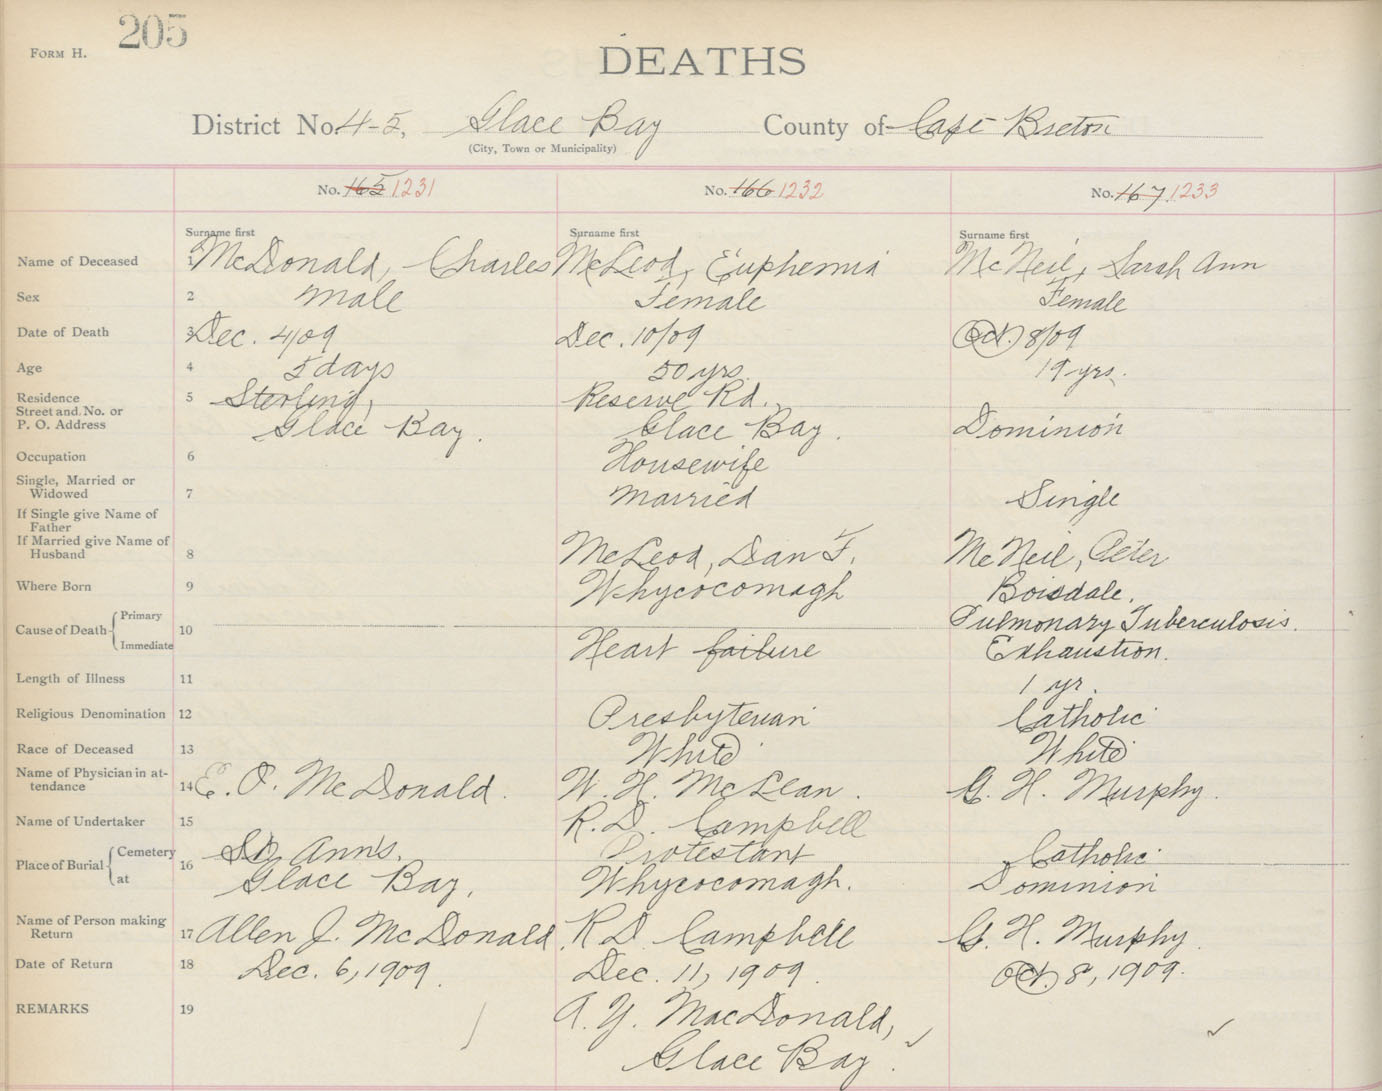 205
FORM H.
DEATHS
District No. 4-5, Glace Bay County of Cape Breton
(City, Town or Municipality)
No. 165 1231 No. 166 1232 No. 167. 1233
Surname first Surname first Surname first
Name of Deceased 1 McDonald, Charles McLeod, Euphemia McNeil, Sarah Ann
Sex 2 Male Female Female
Date of Death 3 Dec. 4/09 Dec. 10/09 Oct. 8/09
Age 4 5 days 50 yrs. 19 yrs.
Residence 5 Sterling, Reserve Rd.,
Street and No. or
P. O. Address Glace Bay. Glace Bay. Dominion
Occupation 6 Housewife
Single, Married or
Widowed 7 Married Single
If Single give Name of
Father
If Married give Name of
Husband 8 McLeod, Dan F. McNeil, Peter
Where Born 9 Whycocomagh Boisdale.
Cause of Death Primary 10 Pulmonary Tuberculosis.
Immediate Heart failure Exhaustion.
Length of Illness 11 1 yr.
Religious Denomination 12 Presbyterian Catholic
Race of Deceased 13 White White
Name of Physician in at-
tendance 14 E. O. McDonald. W. H. McLean. G. H. Murphy.
Name of Undertaker 15 R. D. Campbell
Place of Burial Cemetery 16 St. Ann's. Protestant Catholic
at Glace Bay. Whycocomagh. Dominion
Name of Person making
Return 17 Allen J. McDonald. R D Campbell G. H. Murphy.
Date of Return 18 Dec. 6, 1909. Dec. 11, 1909. Oct. 8, 1909.
REMARKS 19 A. Y. MacDonald,
Glace Bay.